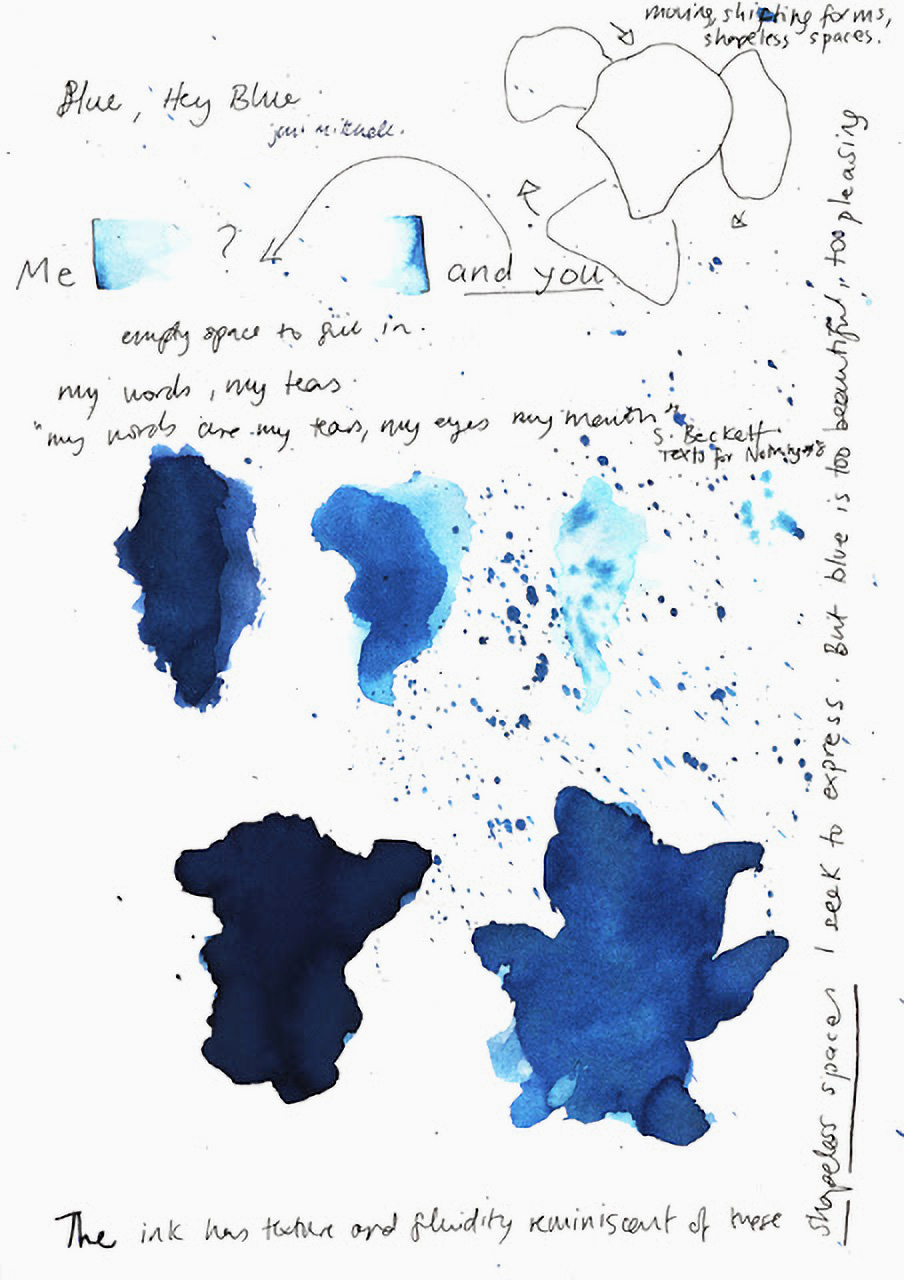 moving, shifting forms,
shapeless spaces.
Blue, Hey Blue
joni mitchell.
?
Me
and you
empty space to fill in.
my words, my tears.
"my words are my tears, my eyes my mouth"
S. Beckett
Texts for Nothing #8
The ink has texture and fluidity reminiscent of these
shapeless spaces I seek to express. But blue is too beautiful, too pleasing